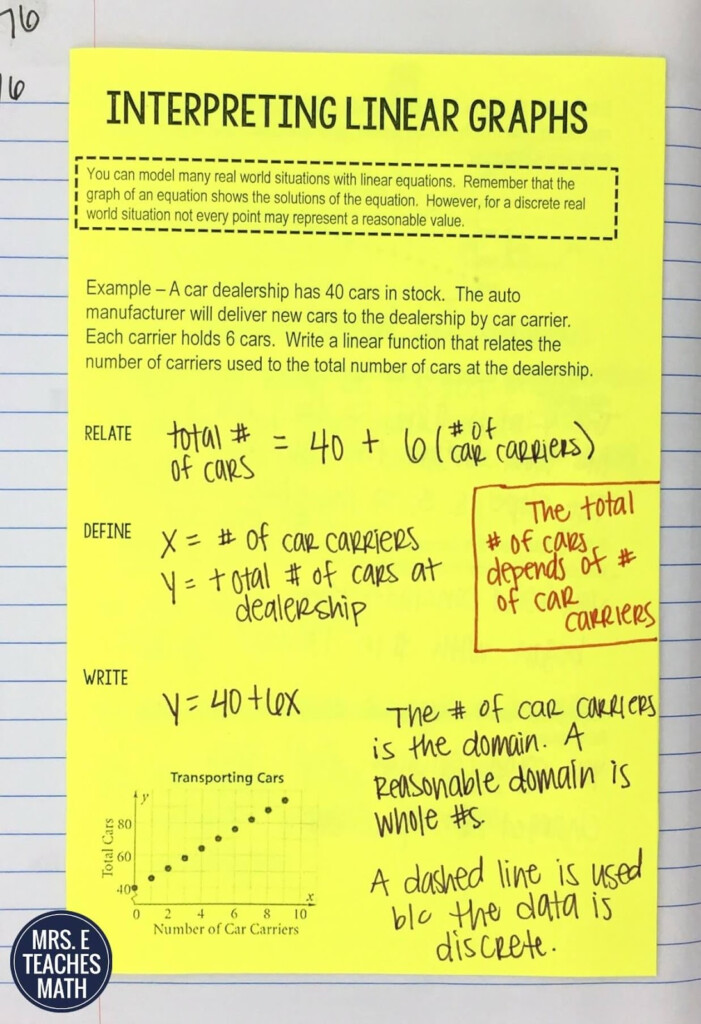 76
16
INTERPRETING LINEAR GRAPHS
You can model many real world situations with linear equations. Remember that the
graph of an equation shows the solutions of the equation. However, for a discrete real
world situation not every point may represent a reasonable value.
Example – A car dealership has 40 cars in stock. The auto
manufacturer will deliver new cars to the dealership by car carrier.
Each carrier holds 6 cars. Write a linear function that relates the
number of carriers used to the total number of cars at the dealership.
RELATE
total # of cars = 40 + 6 (# of car carriers)
The total
# of cars
depends of #
of car
carriers
DEFINE
X = # of car carriers
Y = total # of cars at
dealership
WRITE
Y = 40 + 6X
The # of car carriers
is the domain. A
Reasonable domain is
whole #s.
A dashed line is used
b/c the data is
discrete.
Transporting Cars
y
Total Cars
80
60
40
0 2 4 6 8 10
x
Number of Car Carriers
MRS. E
TEACHES
MATH